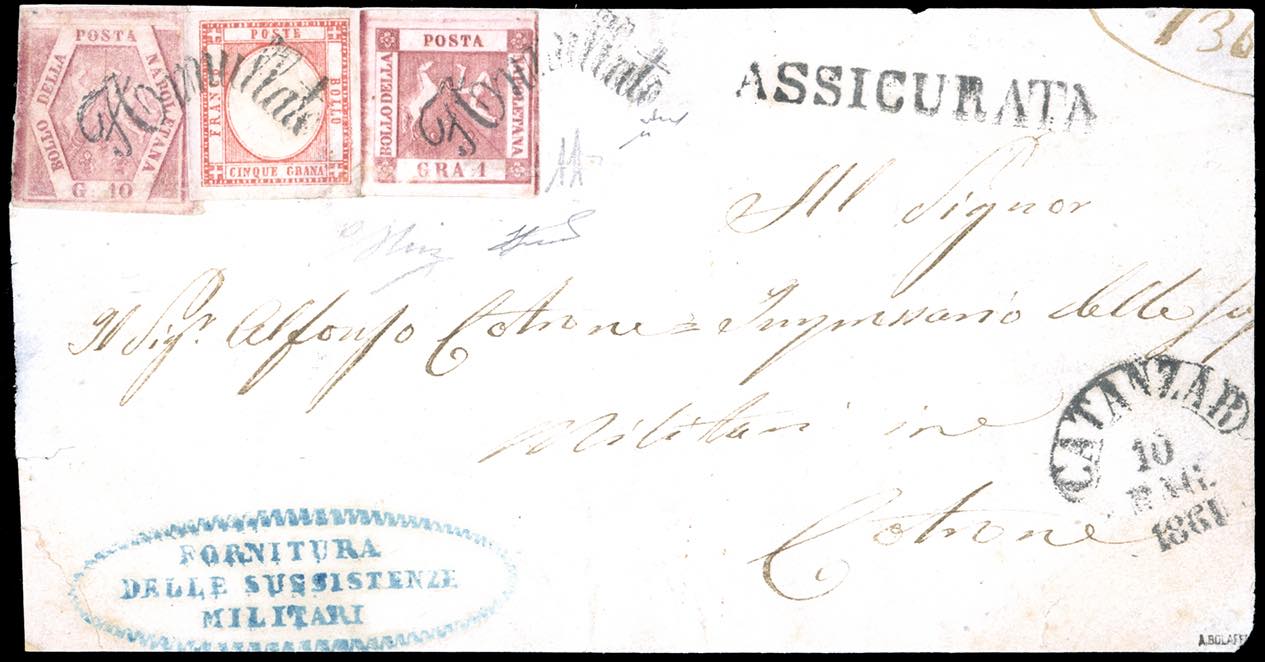 POSTA
BOLLO DELLA
NAPOLETANA
G. 10
POSTE
FRANCO
BOLLO
CINQUE GRANA
POSTA
BOLLO DELLA
NAPOLETANA
GRA 1
Annullato
Annullato
ASSICURATA
136
AD
Al Signor
Il Sigr. Alfonso Cotrone = Impressario delle
Militari in
Cotrone
CATANZARO
10
1861
FORNITURA
DELLE SUSSISTENZE
MILITARI
A.BOLAFF